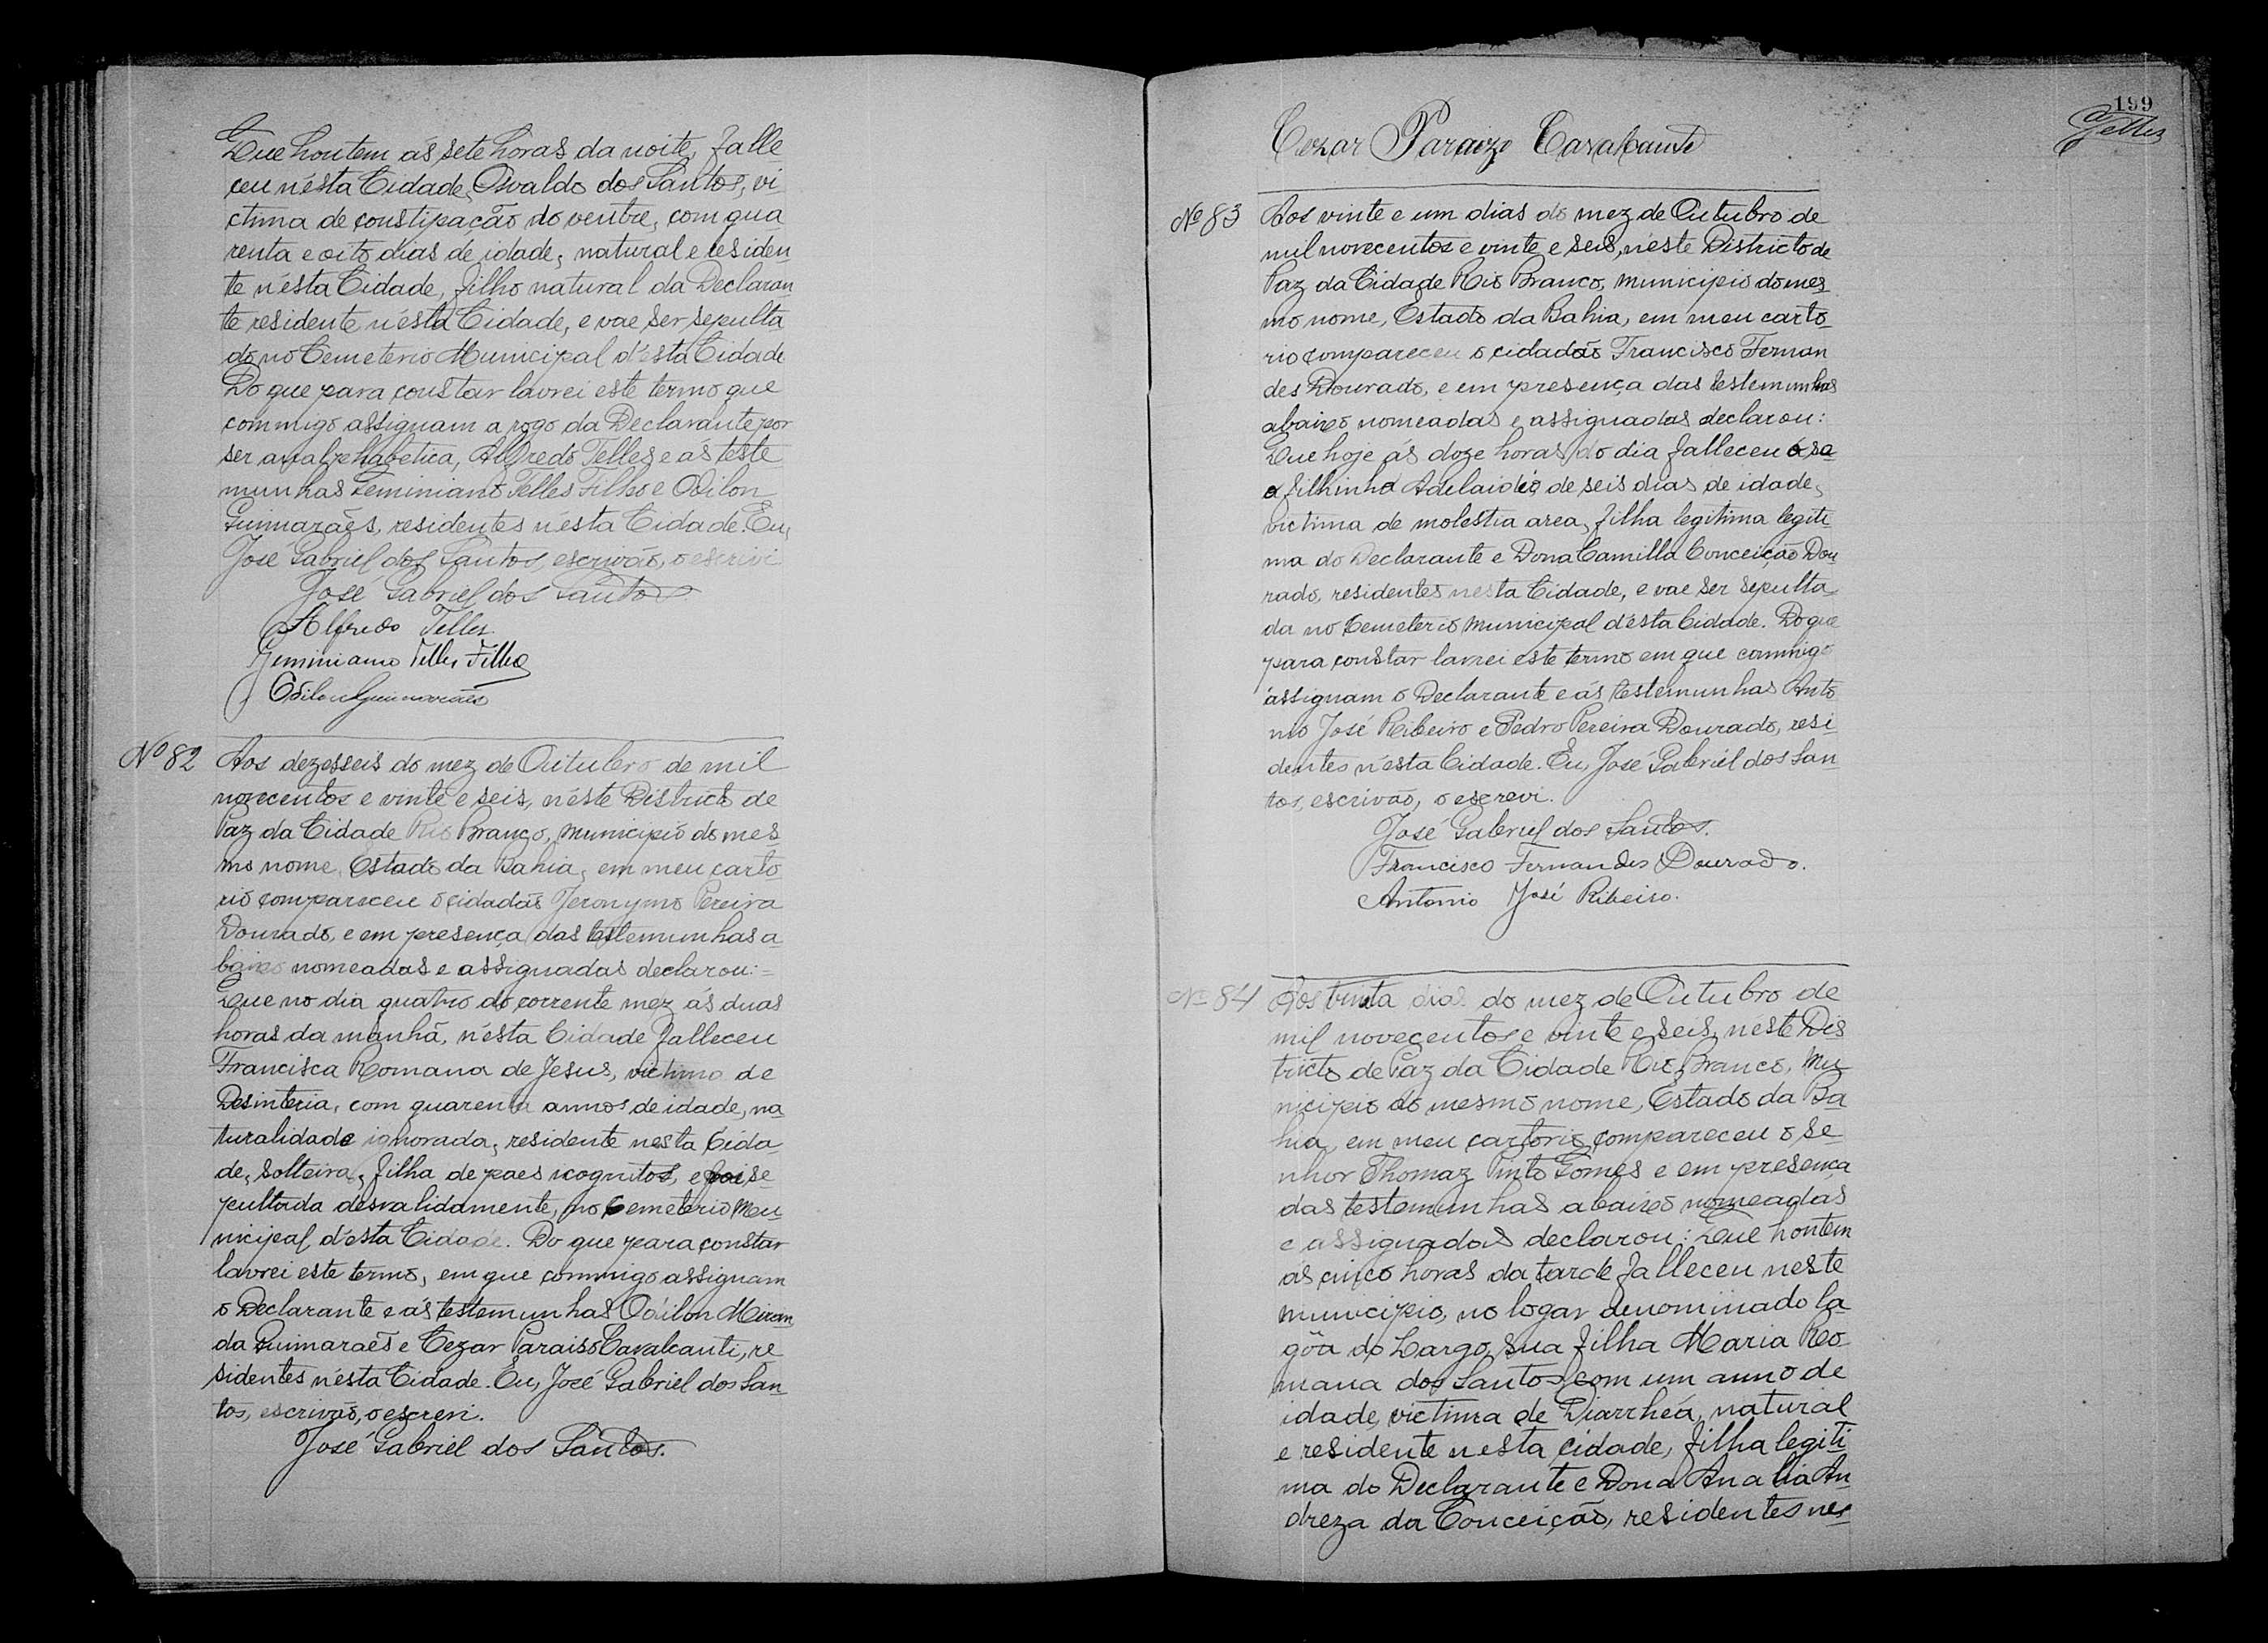 Que hontem ás sete horas da noite, falle
ceu n'esta Cidade, Osvaldo dos Santos, vi
ctima de constipação do ventre, com qua
renta e oito dias de idade, natural e residen
te n'esta Cidade, filho natural da Declaran
te residente n'esta Cidade, e vae ser sepulta
do no Cemeterio Municipal d'esta Cidade
Do que para constar lavrei este termo que
commigo assignam a rogo da Declarante por
ser analphabetica, Alfredo Telles e ás teste
munhas Geminiano Telles Filho e Odilon
Guimarães, residentes n'esta Cidade. Eu,
José Gabriel dos Santos, escrivão, o escrivi
José Gabriel dos Santos
Alfredo Telles
Geminiano Telles Filho
Odilon Guimarães
Nº 82 Aos dezesseis do mez de Outubro de mil
novecentos e vinte e seis, n'éste Districto de
Paz da Cidade Rio Branco, municipio do mes
mo nome, Estado da Bahia, em meu carto
rio compareceu o cidadão Jeronymo Pereira
Dourado, e em presença das testemunhas a
baixo nomeadas e assignadas declarou:=
Que no dia quatro do corrente mez ás duas
horas da manhã, n'ésta Cidade falleceu
Francisca Romana de Jesus, victima de
Desinteria, com quarenta annos de idade, na
turalidade ignorada, residente nesta Cida
de, solteira, filha de paes icognitos, e foi se
pultada desvalidamente, no Cemeterio Mu
nicipal d'ésta Cidade. Do que para constar
lavrei este termo, em que commigo assignam
o Declarante e ás testemunhas Odilon Miran
da Guimarães e Cezar Paraiso Cavalcanti, re
sidentes n'ésta Cidade. Eu, José Gabriel dos San
tos, escrivão, o escrevi.
José Gabriel dos Santos.
199
Telles
Cezar Paraizo Cavalcante
Nº 83 Aos vinte e um dias do mez de Outubro de
mil novecentos e vinte e seis, n'éste Districto de
Paz da Cidade Rio Branco, municipio do mes
mo nome, Estado da Bahia, em meu carto
rio compareceu o cidadão Francisco Fernan
des Dourado, e em presença das testemunhas
abaixo nomeadas e assignadas declarou:
Que hoje ás doze horas do dia falleceu
a filhinha Adelaide, de seis dias de idade,
victima de molestia area, filha legitima legiti
ma do Declarante e Dona Camilla Conceição Dou
rado, residentes nesta Cidade, e vae ser sepulta
da no Cemeterio Municipal d'ésta Cidade. Do que
para constar lavrei este termo em que commigo
assignam o Declarante e ás testemunhas Anto
nio José Ribeiro e Pedro Pereira Dourado, resi
dentes n'ésta Cidade. Eu, José Gabriel dos San
tos, escrivão, o escrevi.
José Gabriel dos Santos.
Francisco Fernandes Dourado.
Antonio José Ribeiro.
Nº 84 Aos trinta dias do mez de Outubro de
mil novecentos e vinte e seis, n'éste Dis
tricto de Paz da Cidade Rio Branco, mu
nicipio do mesmo nome, Estado da Ba
hia, em meu cartorio, compareceu o se
nhor Thomaz Pinto Gomes e em presença
das testemunhas abaixo nomeadas
e assignadas declarou: Que hontem
ás cinco horas da tarde falleceu neste
municipio, no logar denominado la
gôa do Largo, sua filha Maria Ro
mana dos Santos, com um anno de
idade, victima de Diarrhéa, natural
e residente nesta cidade, filha legiti
ma do Declarante e Dona Analia An
dreza da Conceição, residentes nes